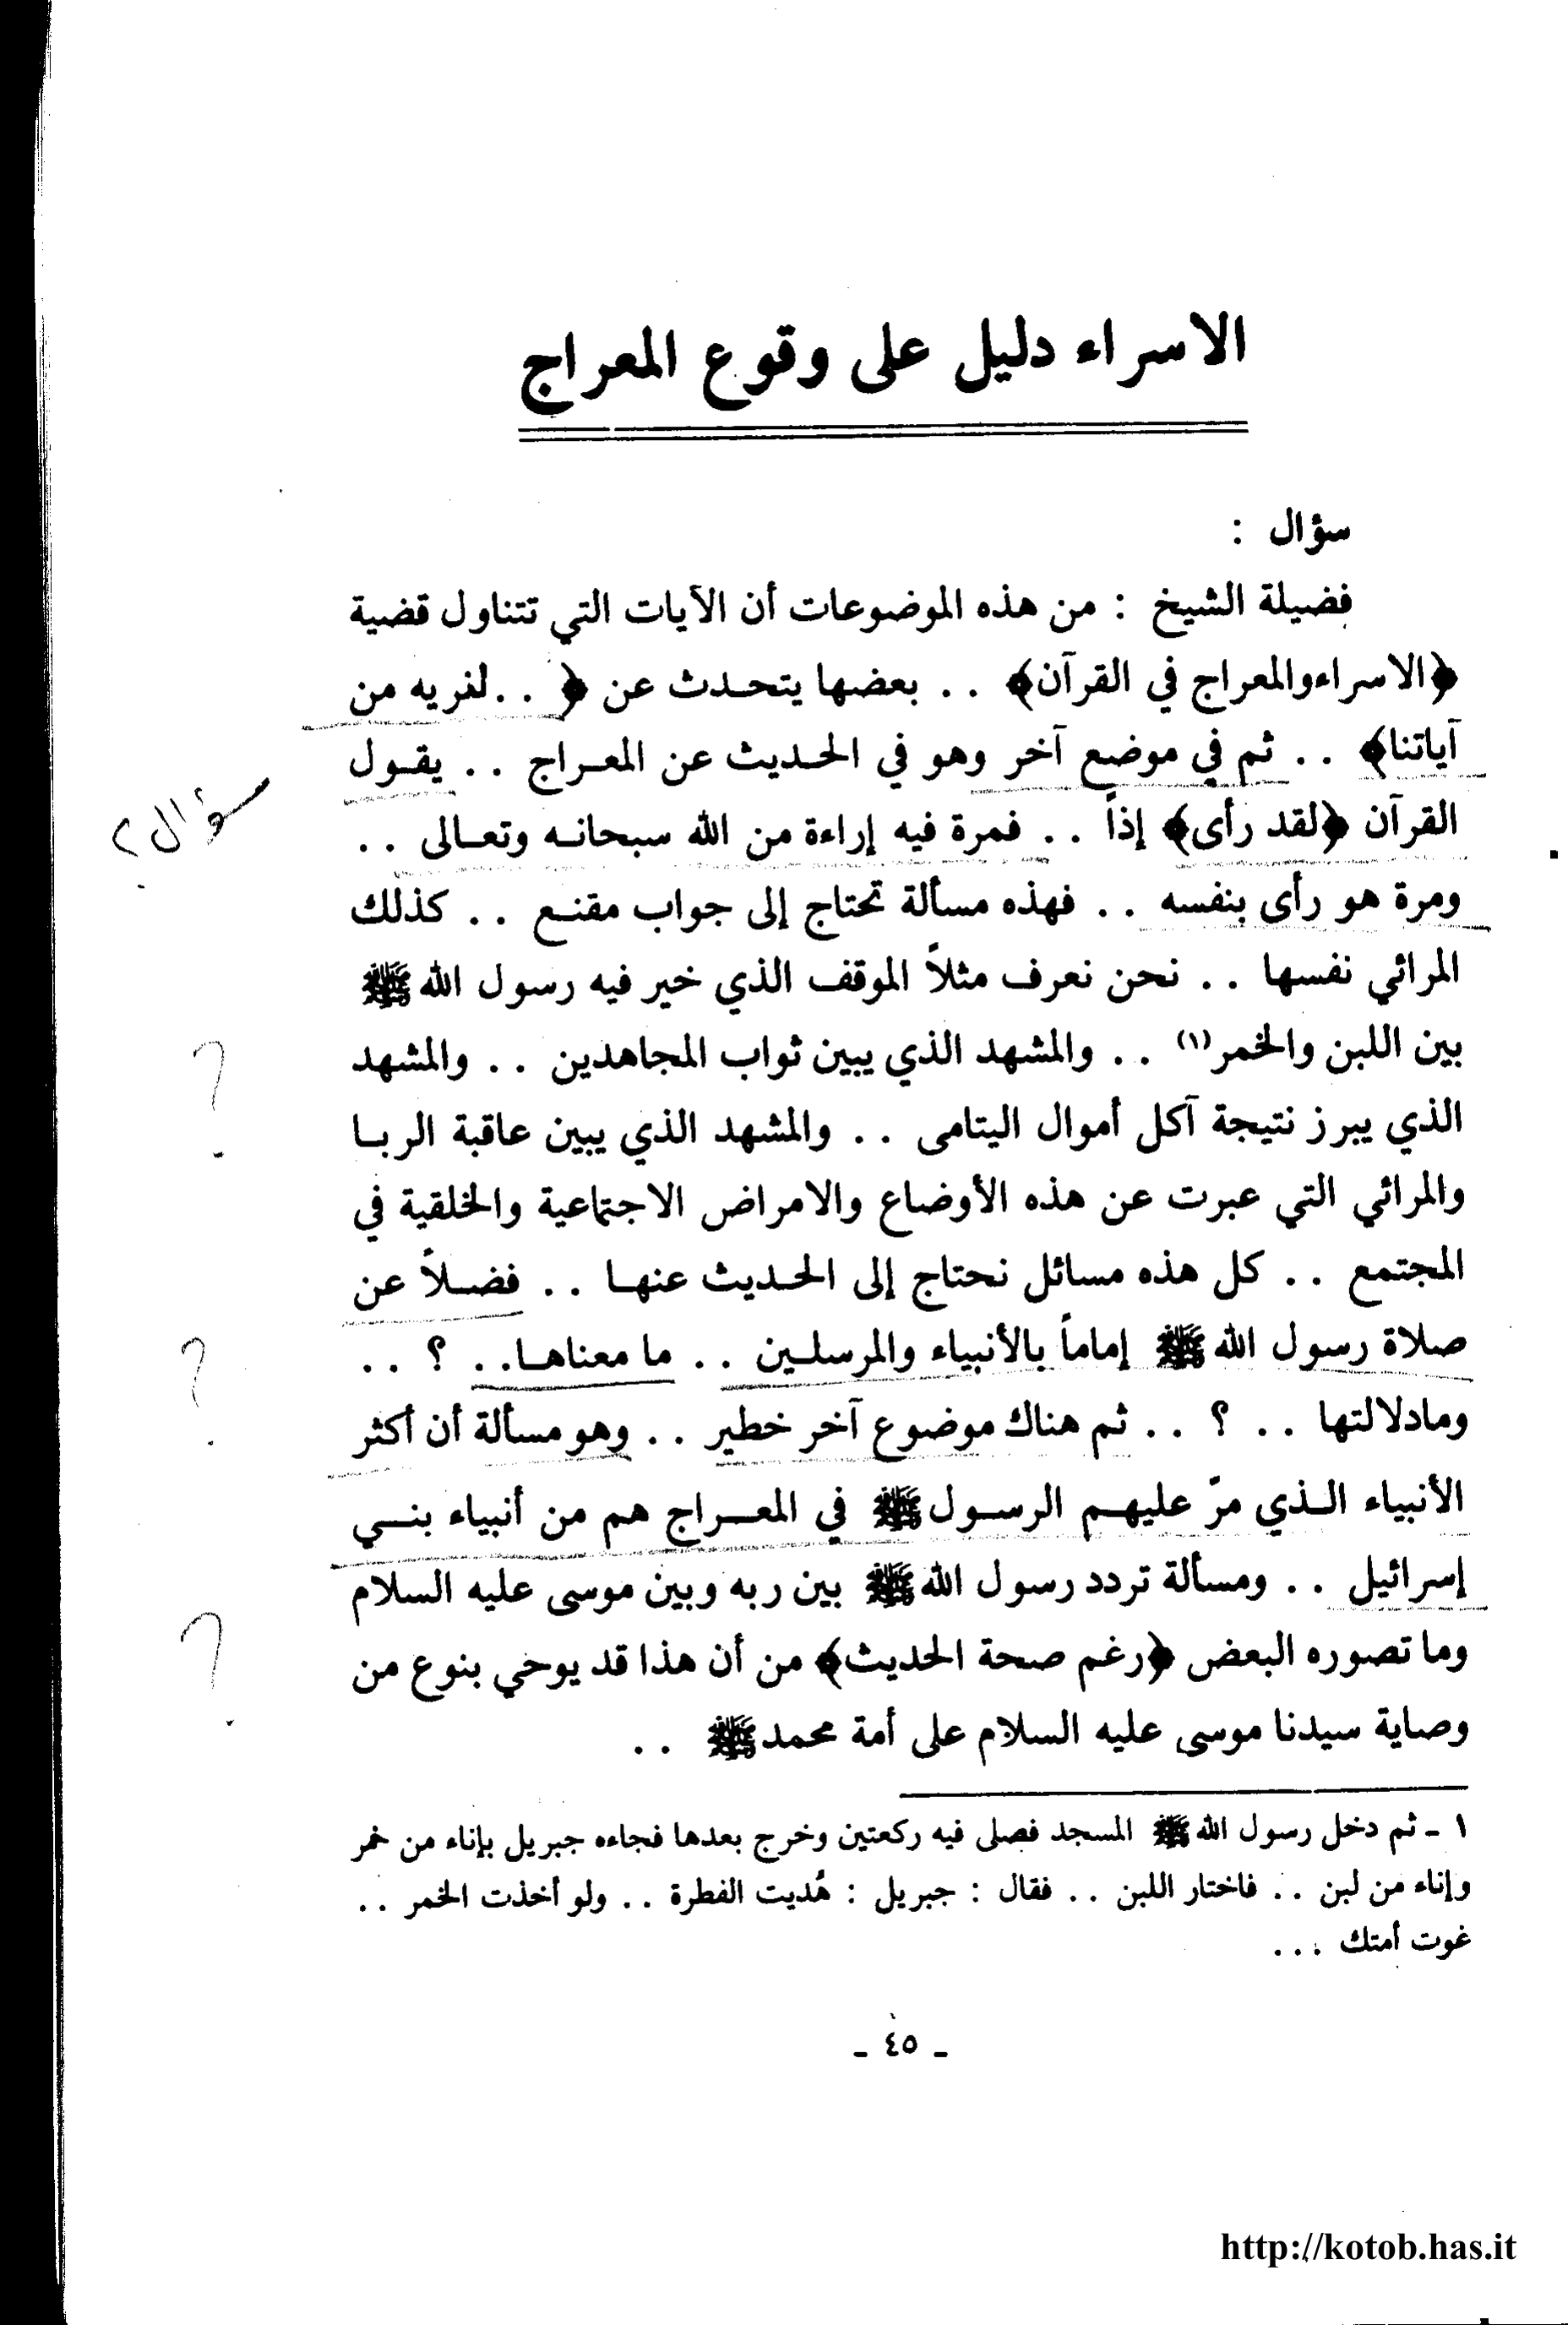 الاسراء دليل على وقوع المعراج
سؤال :
فضيلة الشيخ : من هذه الموضوعات أن الآيات التي تتناول قضية
﴿الاسراءوالمعراج في القرآن﴾ . . بعضها يتحدث عن ﴿ . .لنريه من
آياتنا﴾ . . ثم في موضع آخر وهو في الحديث عن المعراج . . يقول
القرآن ﴿لقد رأى﴾ إذاً . . فمرة فيه إراءة من الله سبحانه وتعالى . .
ومرة هو رأى بنفسه . . فهذه مسألة تحتاج إلى جواب مقنع . . كذلك
المرائي نفسها . . نحن نعرف مثلاً الموقف الذي خير فيه رسول الله ﷺ
بين اللبن والخمر(١) . . والمشهد الذي يبين ثواب المجاهدين . . والمشهد
الذي يبرز نتيجة آكل أموال اليتامى . . والمشهد الذي يبين عاقبة الربا
والمرائي التي عبرت عن هذه الأوضاع والامراض الاجتماعية والخلقية في
المجتمع . . كل هذه مسائل نحتاج إلى الحديث عنها . . فضلاً عن
صلاة رسول الله ﷺ إماماً بالأنبياء والمرسلين . . ما معناها. . ؟ . .
ومادلالتها . . ؟ . . ثم هناك موضوع آخر خطير . . وهو مسألة أن أكثر
الأنبياء الذي مرّ عليهم الرسول ﷺ في المعراج هم من أنبياء بني
إسرائيل . . ومسألة تردد رسول الله ﷺ بين ربه وبين موسى عليه السلام
وما تصوره البعض ﴿رغم صحة الحديث﴾ من أن هذا قد يوحي بنوع من
وصاية سيدنا موسى عليه السلام على أمة محمد ﷺ . .
١ - ثم دخل رسول الله ﷺ المسجد فصلى فيه ركعتين وخرج بعدها فجاءه جبريل بإناء من خمر
وإناء من لبن . . فاختار اللبن . . فقال : جبريل : هُديت الفطرة . . ولو أخذت الخمر . .
غوت أمتك . . .
- ٤٥ -
سؤال ؟
؟
؟
؟
http://kotob.has.it